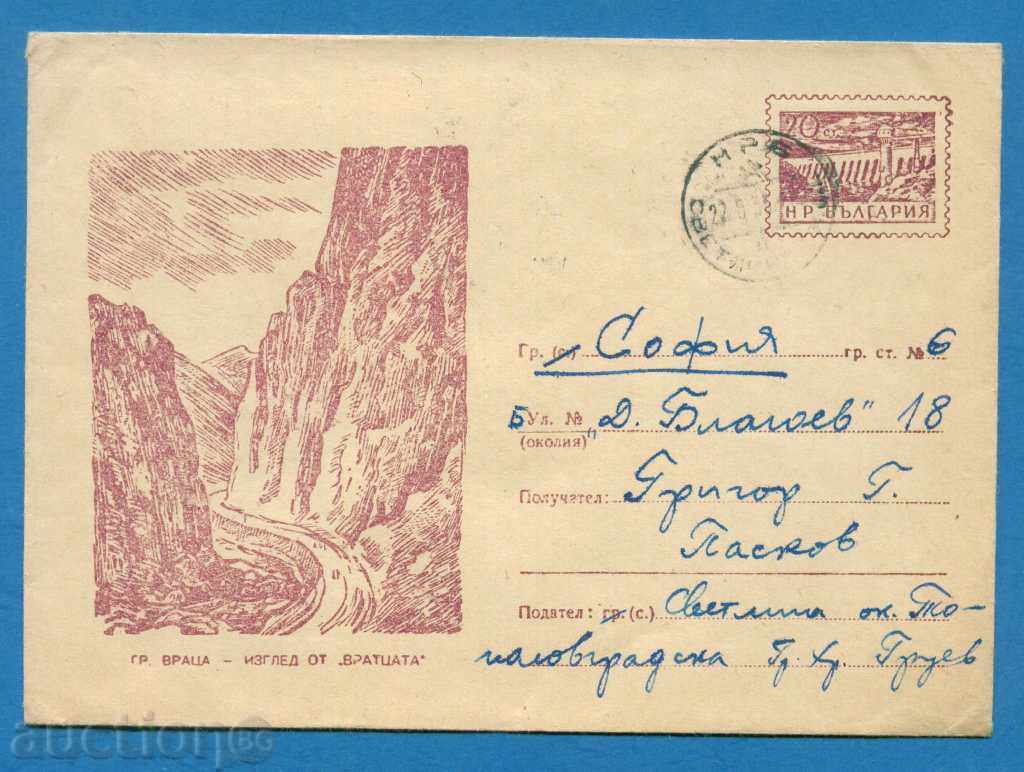 20 ст.
НР БЪЛГАРИЯ
НРБ
Гр. (с.) София гр. ст. № 6
Б Ул. № „Д. Благоев" 18
(околия)
Получател: Григор Г.
Пасков
Подател: гр. (с.) Светлина ок. То-
половградска Гр. Хр. Груев
ГР. ВРАЦА – ИЗГЛЕД ОТ „ВРАТЦАТА"
auction BG